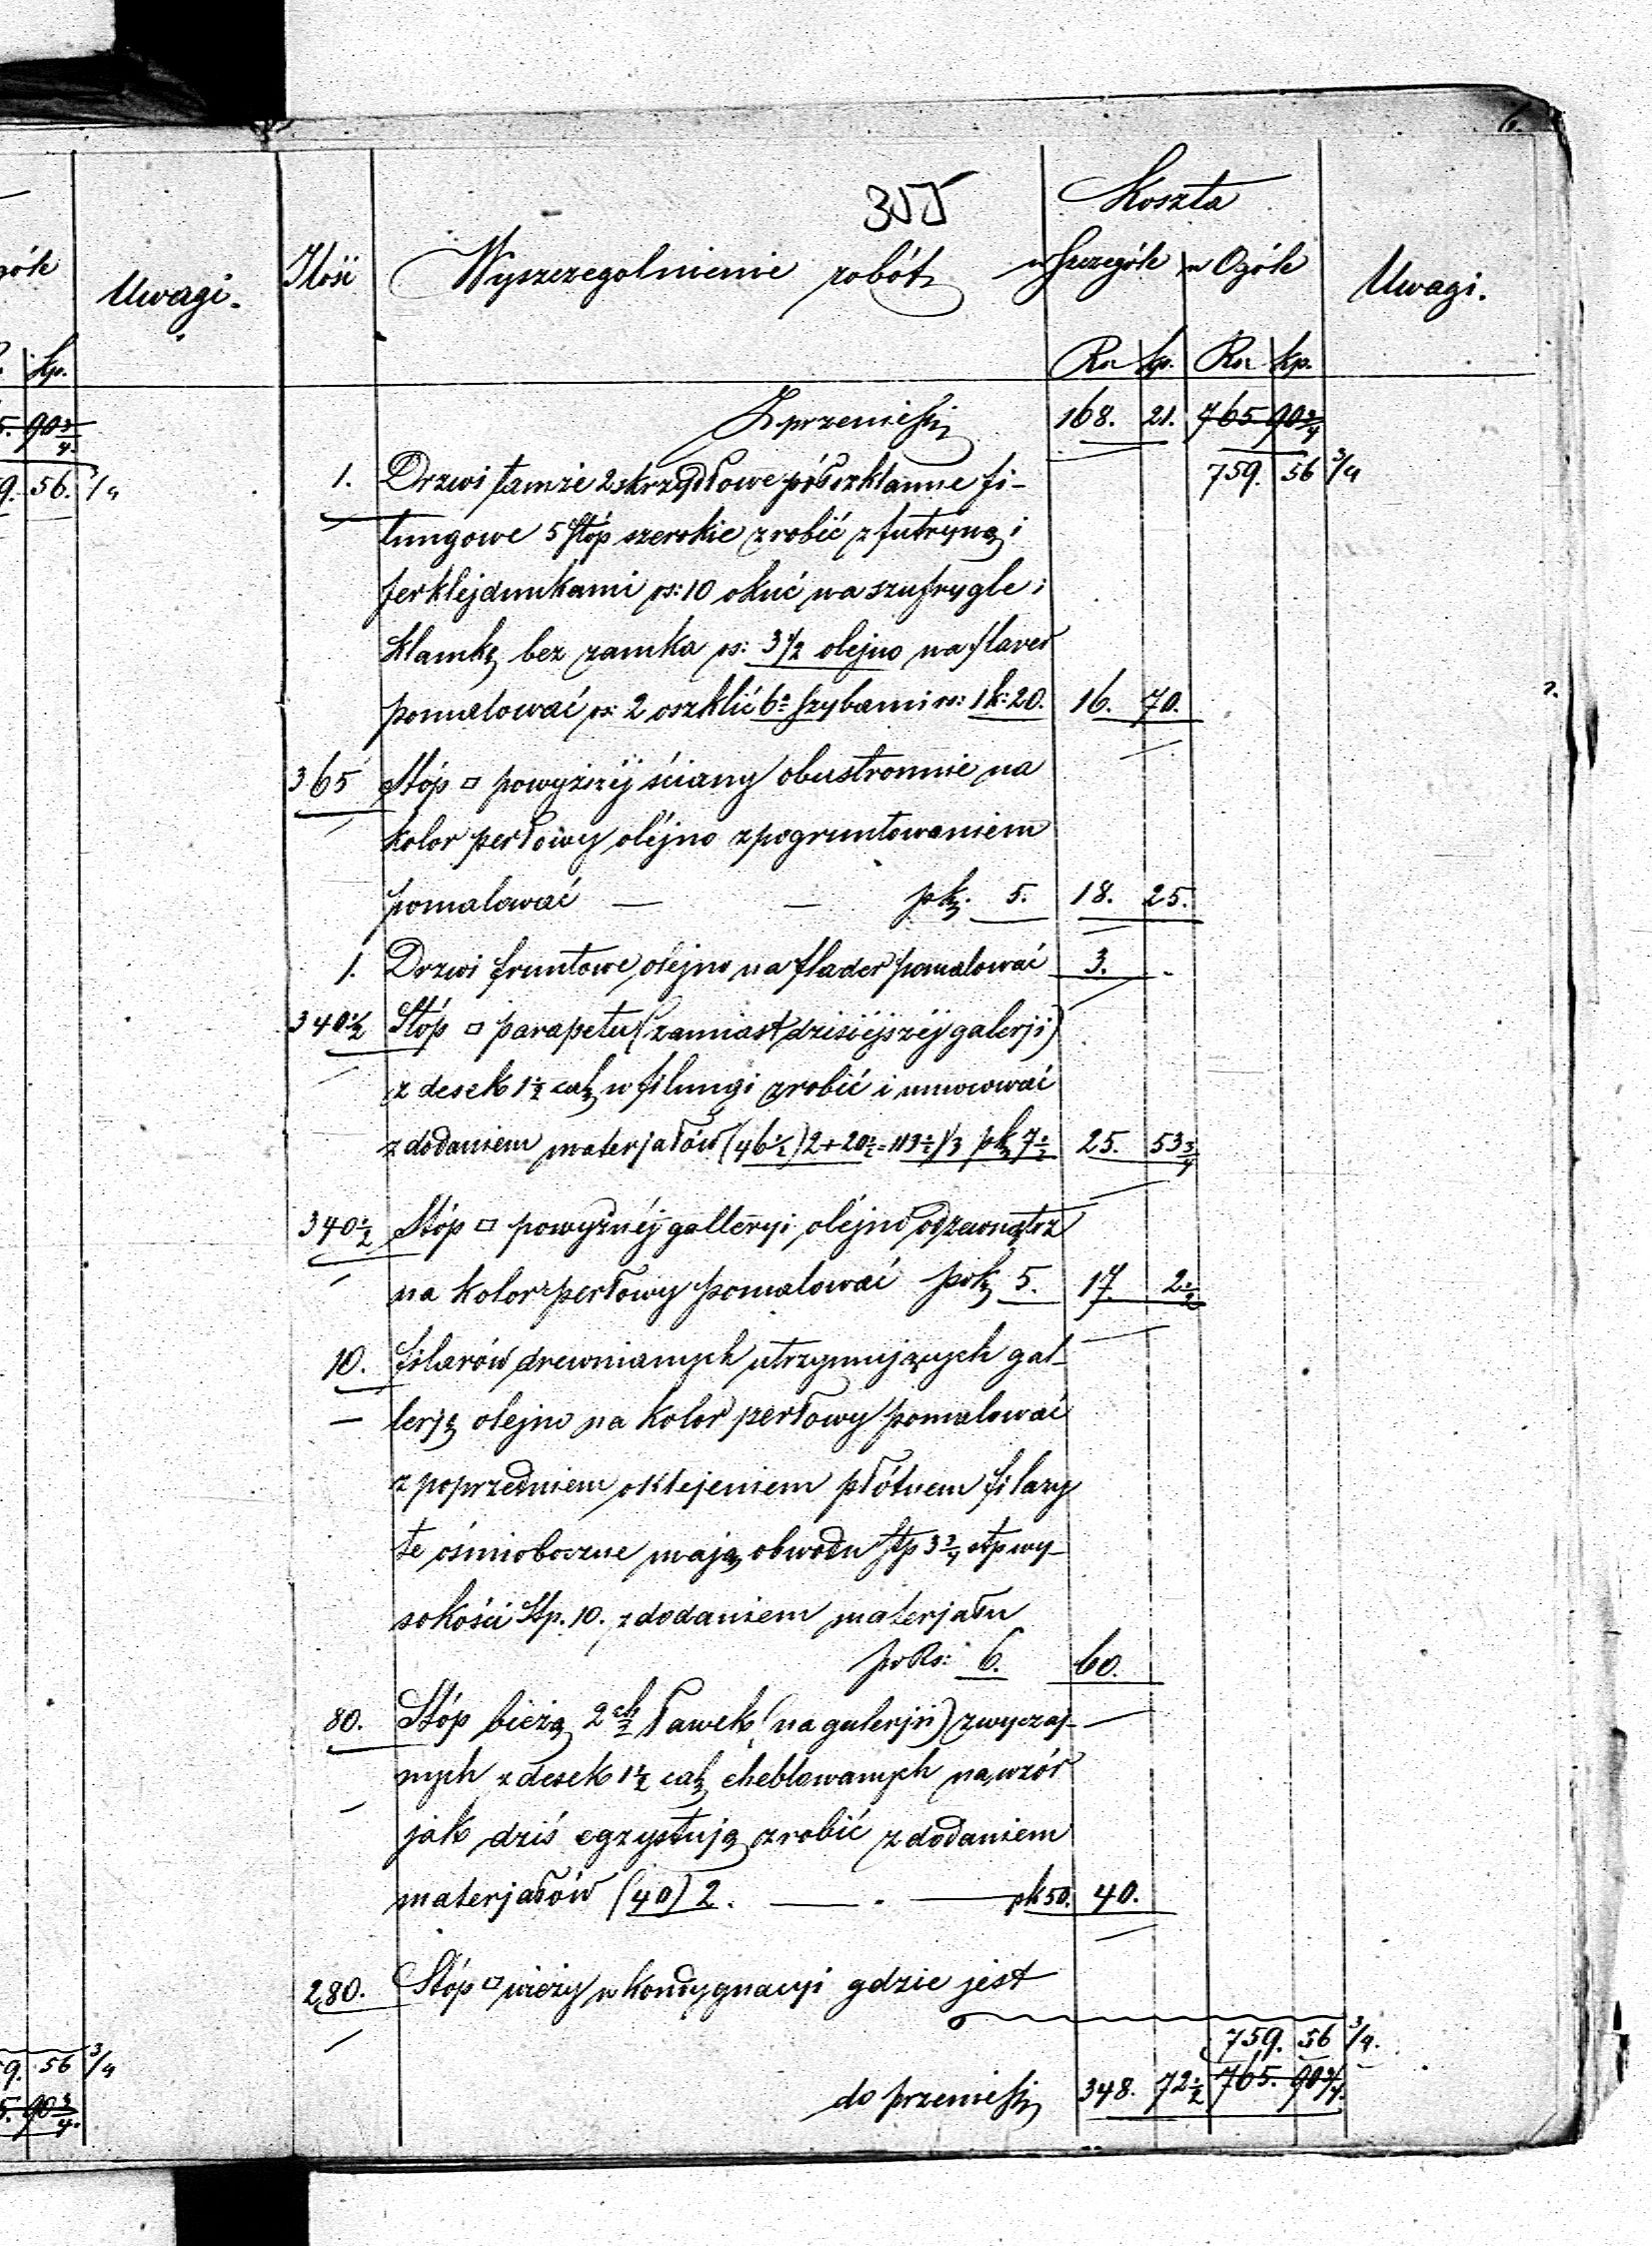 6.
355
Ilość Wyszczegolnienie robót Koszta Uwagi.
w Szczególe w Ogóle
Rsr kp. Rsr kp.
góle Uwagi.
kp.
Z przeniesienia 168. 21. 765 90 3/4
5. 90 3/4
759. 56 3/4
9. 56. 3/4
1. Drzwi tamże 2 skrzydłowe pół oszklanne fi-
lungowe 5 Stóp szerokie zrobić z futryną i
ferklejdunkami rs: 10 okuć na szufrygle i
klamkę bez zamka rs: 3 1/2 olejno na flader
pomalować rs: 2 oszklić 6a Szybami rs: 1 k: 20. 16. 70.
365 Stóp □ powyższéj ściany obustronnie na
kolor perłowy oléjno z pogruntowaniem
pomalować — — pk. 5. 18. 25.
1. Drzwi fruntowe olejno na flader pomalować 3. -
340 1/2 Stóp □ parapetu (zamiast dzisiéjszéj galerji)
z desek 1 1/2 cal w filungi zrobić i umocować
z dodaniem materjałów (46 1/2) 2 + 20 1/2 = 113 1/2 / 3 pk 7 1/2 25. 53 3/4
340 1/2 Stóp □ powyżnéj galleryi oléjno od zewnątrz
na kolor perłowy pomalować po k 5. 17. 2 1/2
10. filarów drewnianych utrzymujących gal-
lerję olejno na kolor perłowy pomalować
z poprzedniem oklejeniem płótnem filary
te ośmioboczne mają obwodu Stp 3 3/4 stp wy-
sokości Stp. 10. z dodaniem materjału
po Rs: 6. 60.
80. Stóp bieżą 2ch ławek (na galerjii) zwyczaj-
nych z desek 1 1/2 cal cheblowanych na wzór
jak dziś egzystują zrobić z dodaniem
materjałów (40) 2. — . — pk 50. 40.
280. Stóp □ wieży w kondygnacyi gdzie jest
759. 56 3/4.
9. 56 3/4
do przeniesienia 348. 72 1/2 765. 90 3/4.
5. 90 3/4.